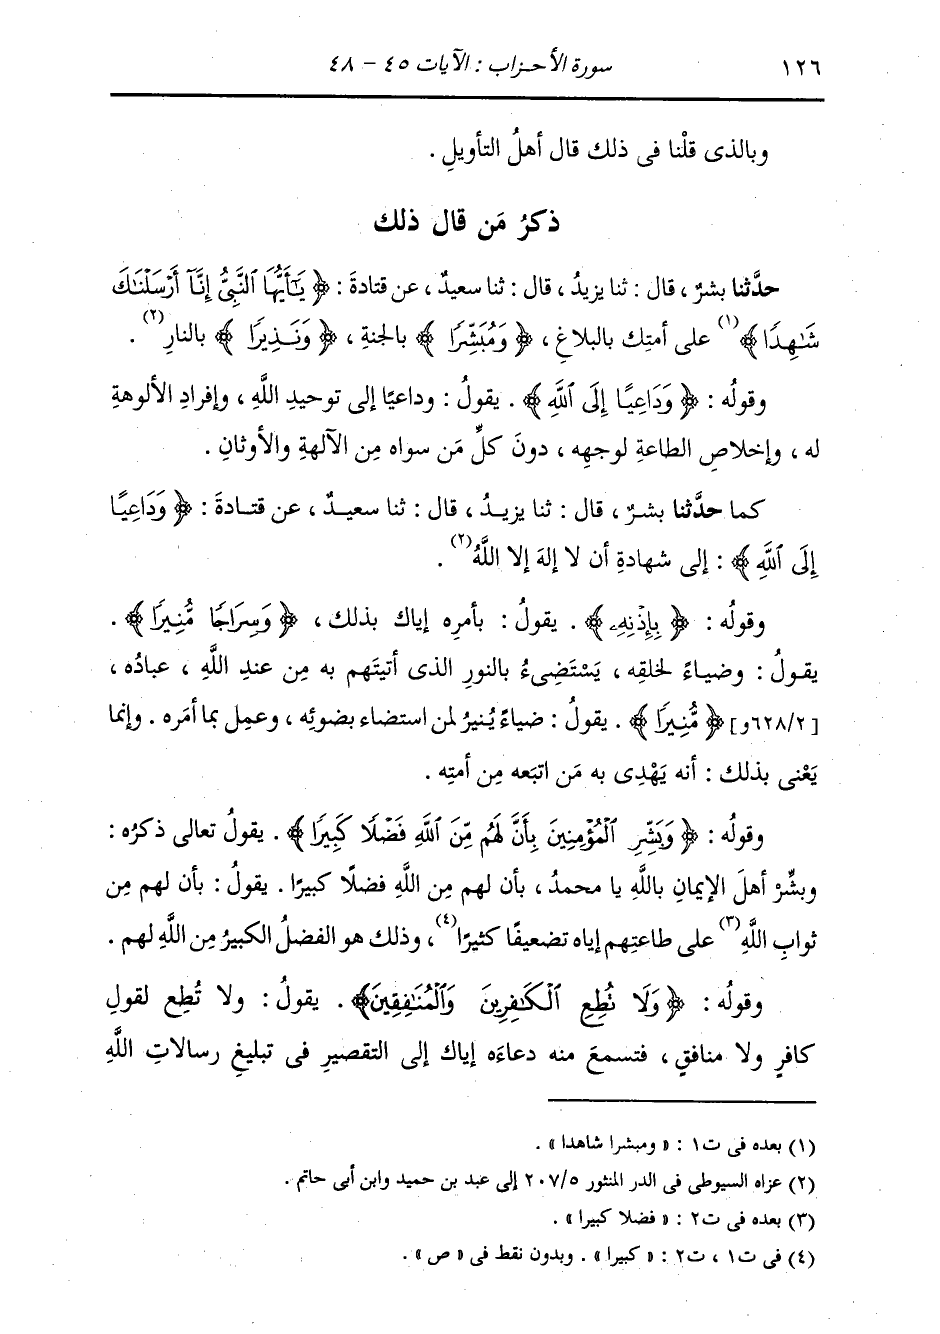 ١٢٦ سورة الأحزاب : الآيات ٤٥ – ٤٨
وبالذى قلْنا فى ذلك قال أهلُ التأويلِ .
ذكرُ مَن قال ذلك
حدَّثنا بشرٌ ، قال : ثنا يزيدُ ، قال : ثنا سعيدٌ ، عن قتادةَ : ﴿ يَٰٓأَيُّهَا ٱلنَّبِىُّ إِنَّآ أَرْسَلْنَٰكَ
شَٰهِدًا ﴾(١) على أمتِك بالبلاغِ ، ﴿ وَمُبَشِّرًا ﴾ بالجنةِ ، ﴿ وَنَذِيرًا ﴾ بالنارِ(٢) .
وقولُه : ﴿ وَدَاعِيًا إِلَى ٱللَّهِ ﴾ . يقولُ : وداعيًا إلى توحيدِ اللَّهِ ، وإفرادِ الألوهةِ
له ، وإخلاصِ الطاعةِ لوجهِه ، دونَ كلِّ مَن سواه مِن الآلهةِ والأوثانِ .
كما حدَّثنا بشرٌ ، قال : ثنا يزيدُ ، قال : ثنا سعيدٌ ، عن قتادةَ : ﴿ وَدَاعِيًا
إِلَى ٱللَّهِ ﴾ : إلى شهادةِ أن لا إلهَ إلا اللَّهُ(٢) .
وقولُه : ﴿ بِإِذْنِهِۦ ﴾ . يقولُ : بأمرِه إياك بذلك ، ﴿ وَسِرَاجًا مُّنِيرًا ﴾ .
يقولُ : وضياءً لخلقِه ، يَسْتَضِىءُ بالنورِ الذى أتيتَهم به مِن عندِ اللَّهِ ، عبادُه ،
[٦٢٨/٢و] ﴿ مُّنِيرًا ﴾ . يقولُ : ضياءً يُنيرُ لمن استضاء بضوئِه ، وعمِل بما أمَره . وإنما
يَعْنى بذلك : أنه يَهْدِى به مَن اتبَعه مِن أمتِه .
وقولُه : ﴿ وَبَشِّرِ ٱلْمُؤْمِنِينَ بِأَنَّ لَهُم مِّنَ ٱللَّهِ فَضْلًا كَبِيرًا ﴾ . يقولُ تعالى ذكرُه :
وبشِّرْ أهلَ الإيمانِ باللَّهِ يا محمدُ ، بأن لهم مِن اللَّهِ فضلًا كبيرًا . يقولُ : بأن لهم مِن
ثوابِ اللَّهِ(٣) على طاعتِهم إياه تضعيفًا كثيرًا(٤) ، وذلك هو الفضلُ الكبيرُ مِن اللَّهِ لهم .
وقولُه : ﴿ وَلَا تُطِعِ ٱلْكَٰفِرِينَ وَٱلْمُنَٰفِقِينَ ﴾ . يقولُ : ولا تُطِع لقولِ
كافرٍ ولا منافقٍ ، فتسمعَ منه دعاءَه إياك إلى التقصيرِ فى تبليغِ رسالاتِ اللَّهِ
(١) بعده فى ت١ : « ومبشرا شاهدا » .
(٢) عزاه السيوطى فى الدر المنثور ٢٠٧/٥ إلى عبد بن حميد وابن أبى حاتم .
(٣) بعده فى ت٢ : « فضلا كبيرا » .
(٤) فى ت١ ، ت٢ : « كبيرا » . وبدون نقط فى « ص » .